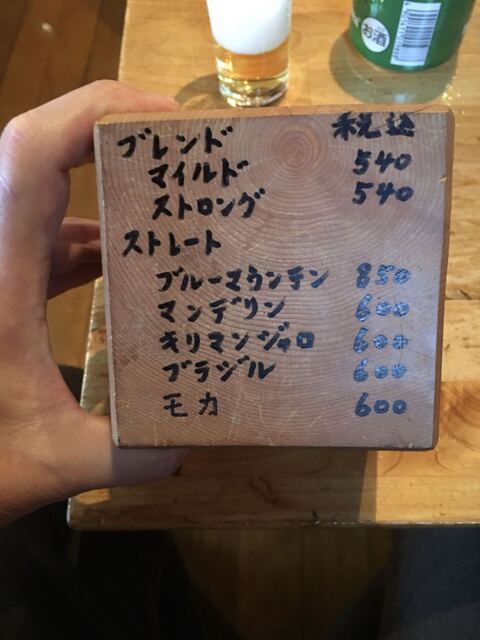 お酒
ブレンド 税込
マイルド 540
ストロング 540
ストレート
ブルーマウンテン 850
マンデリン 600
キリマンジャロ 600
ブラジル 600
モカ 600